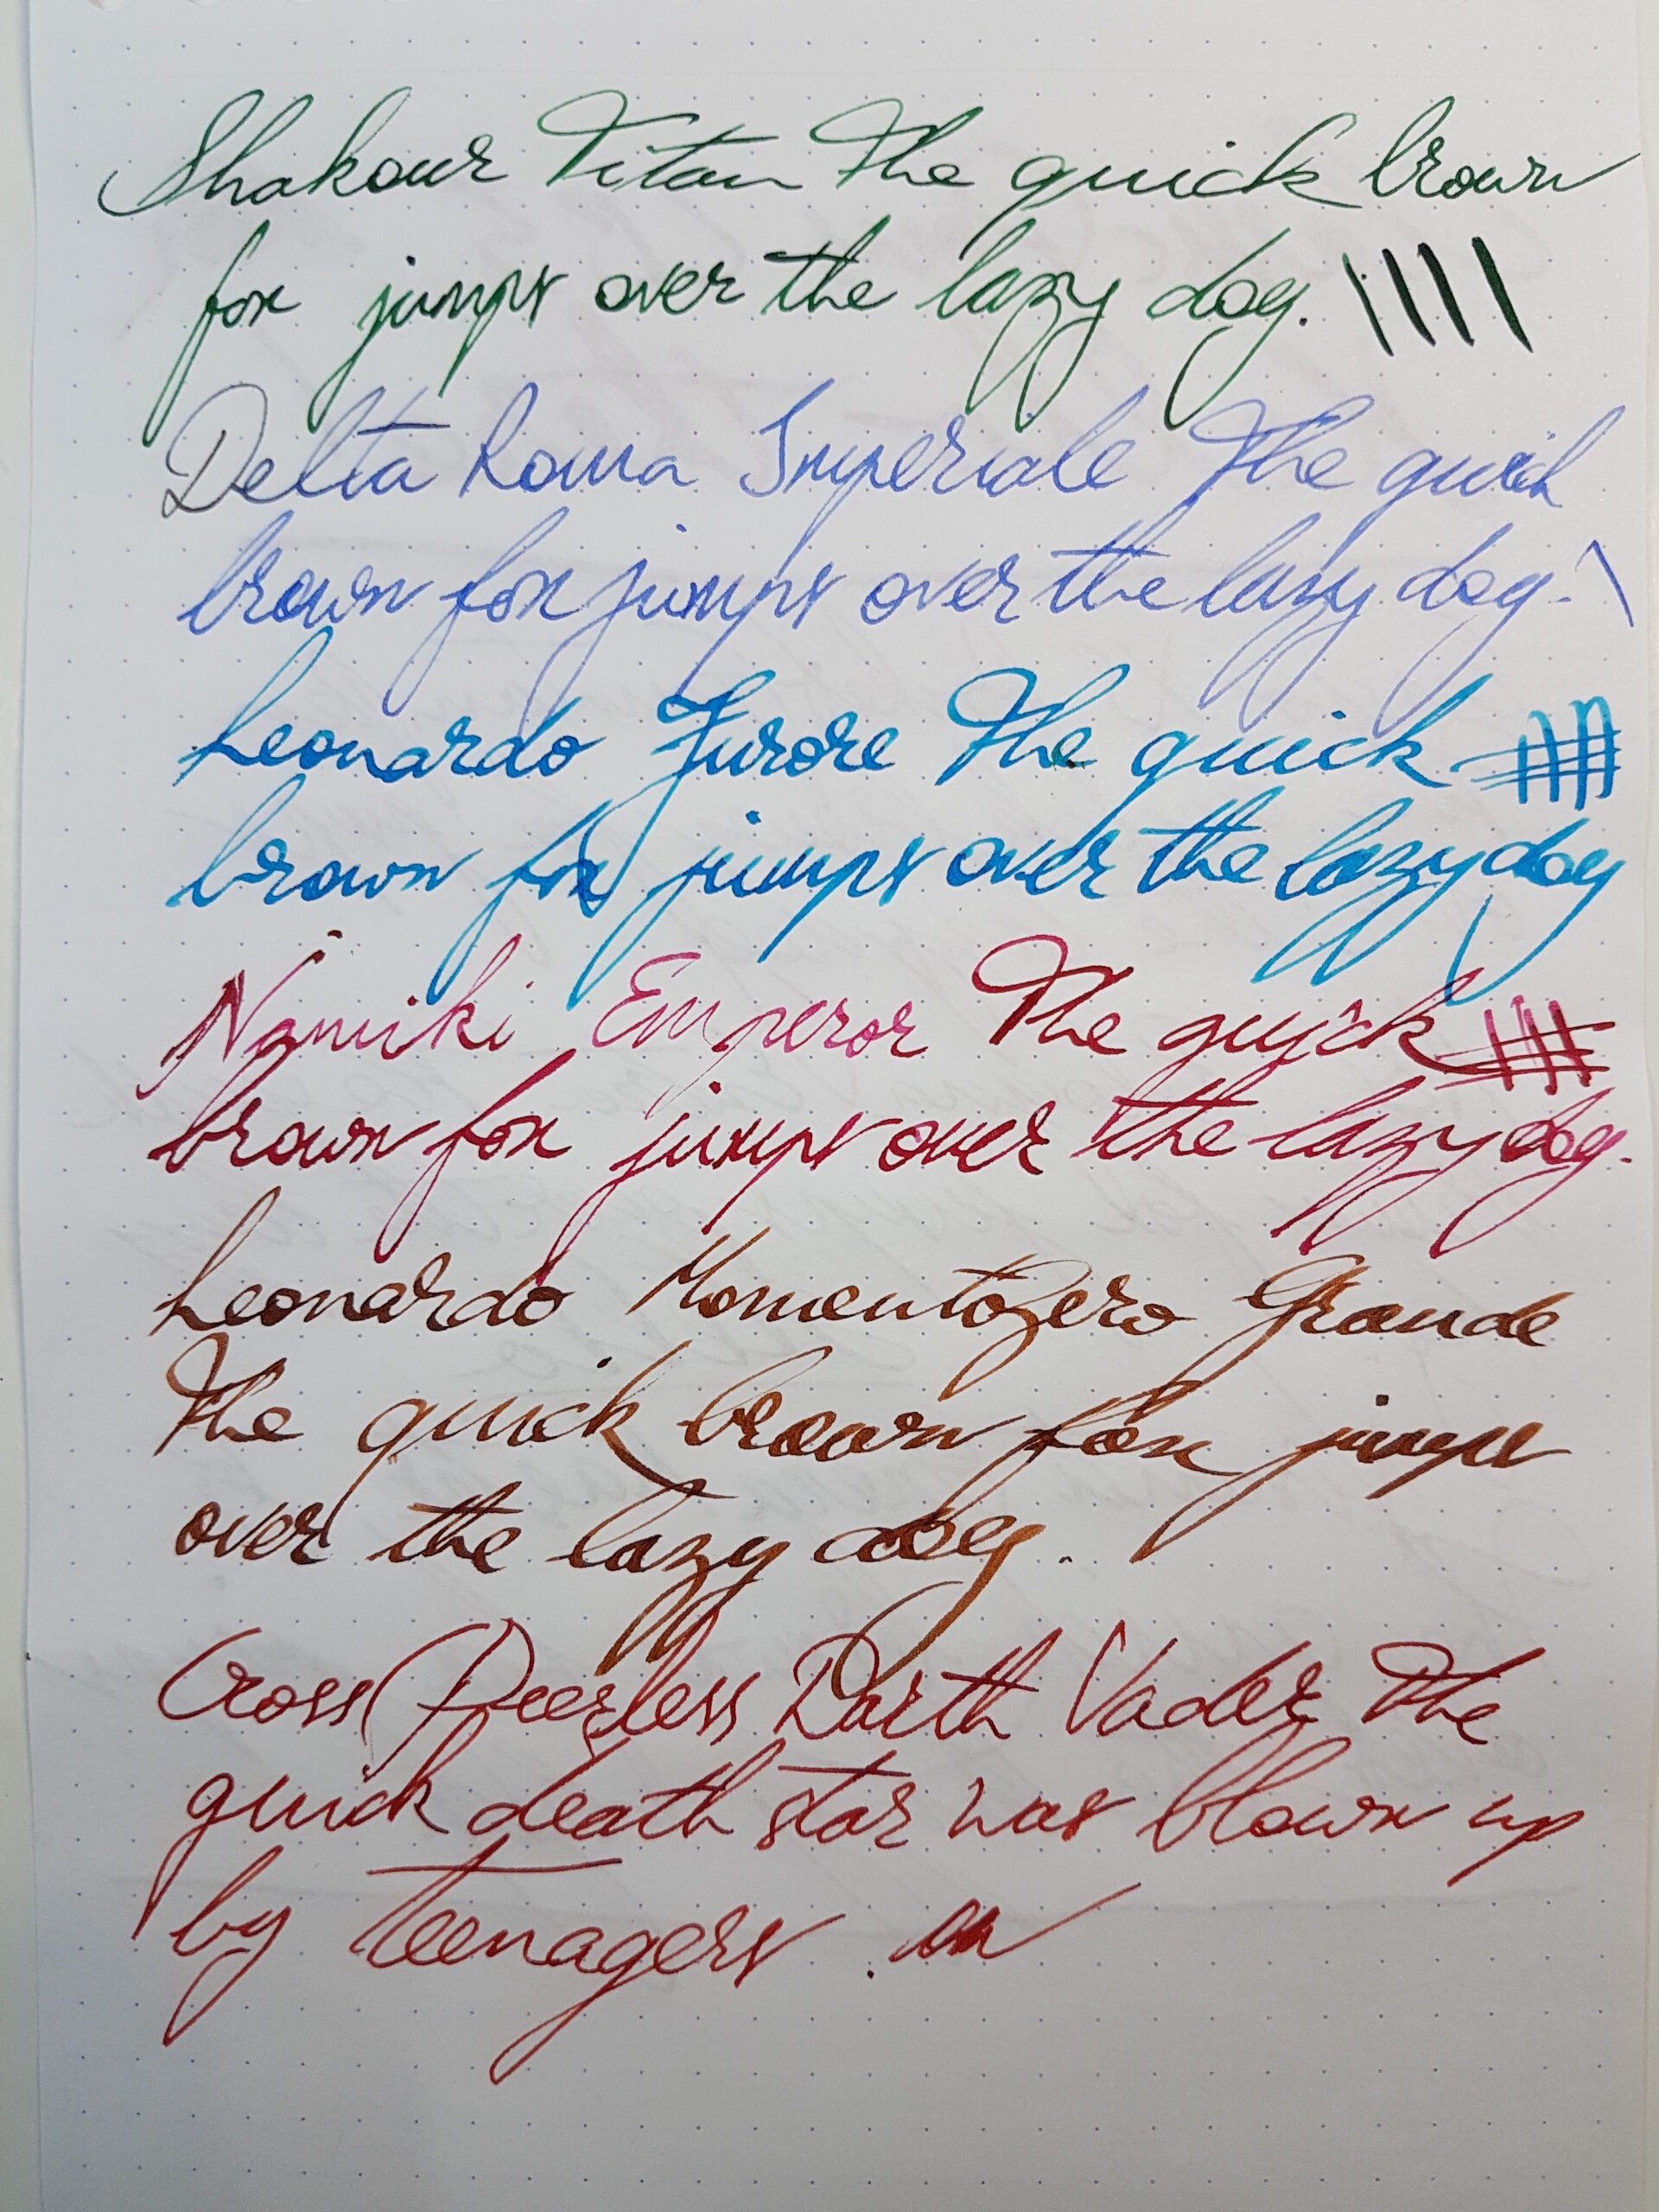 Shakour Titan The quick brown
fox jumps over the lazy dog.
Delta Roma Imperiale The quick
brown fox jumps over the lazy dog.
Leonardo Furore The quick
brown fox jumps over the lazy dog
Namiki Emperor The quick
brown fox jumps over the lazy dog.
Leonardo MomentoZero Grande
The quick brown fox jumps
over the lazy dog.
Cross Peerless Darth Vader The
quick death star was blown up
by teenagers.